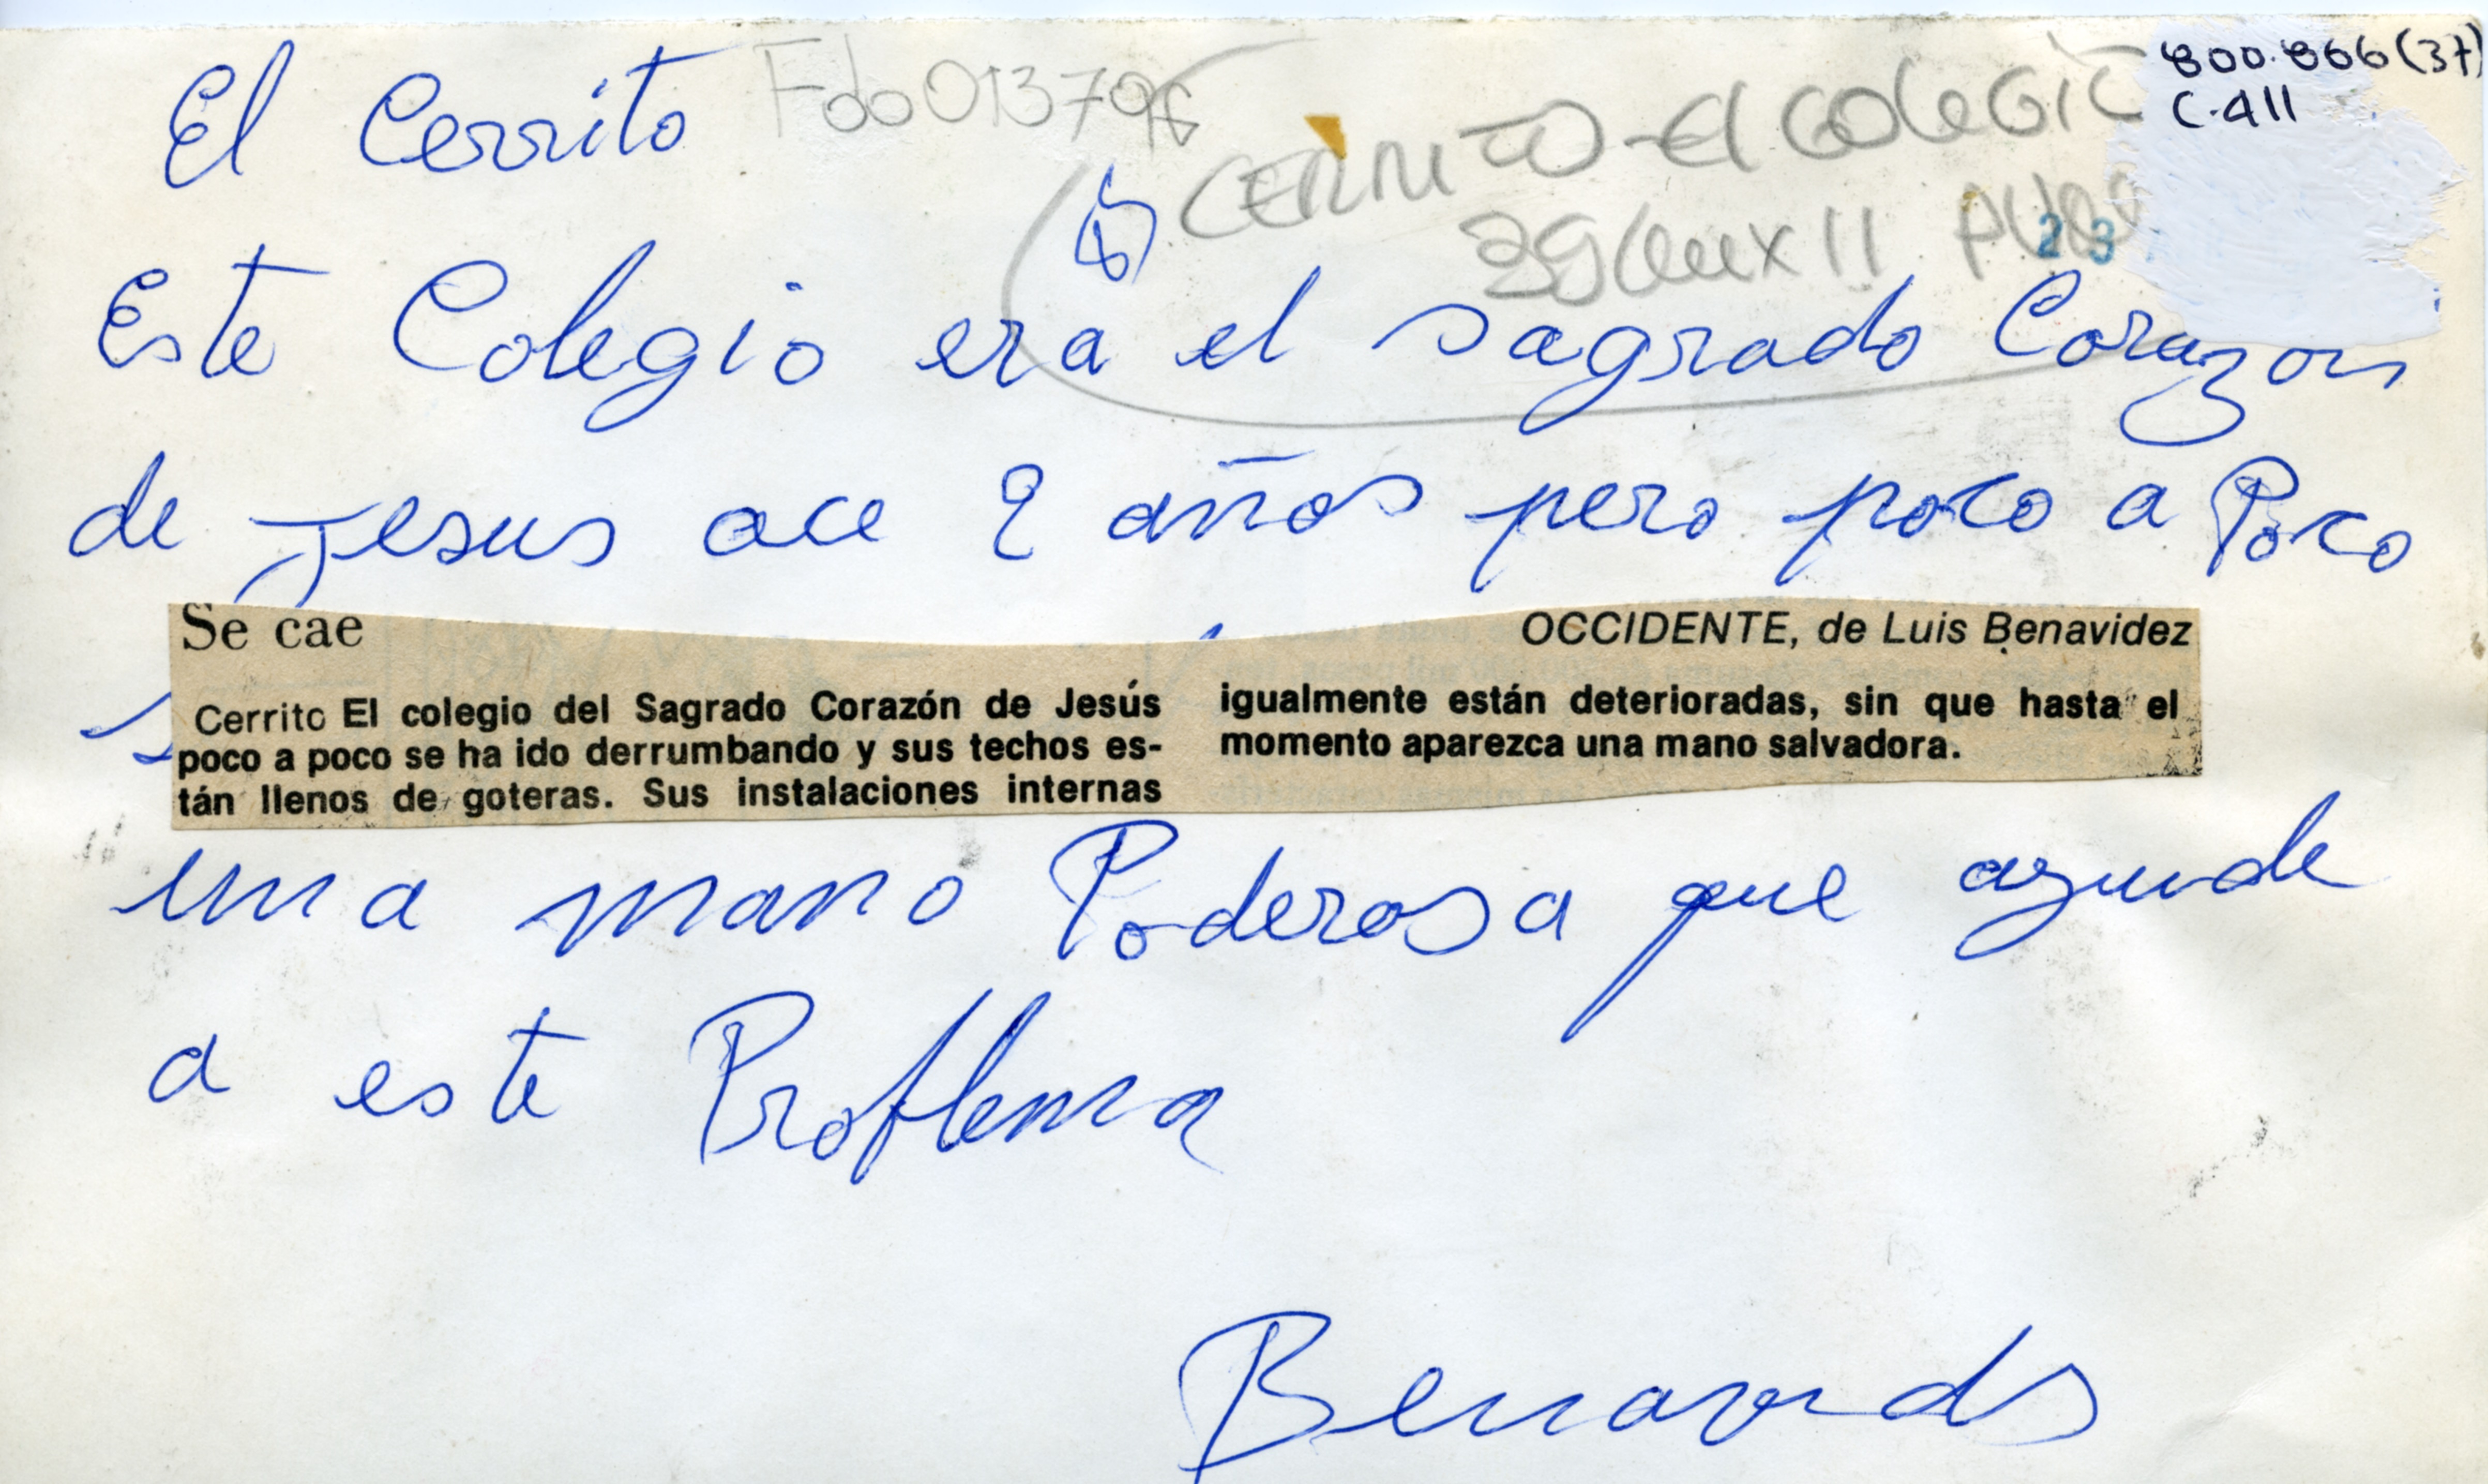 El Cerrito
Fdo013796
800.866(37)
C.411
CERRITO - El COLEGIO
39 x 11
23
Este Colegio era el sagrado Corazon
de Jesus ace 2 años pero poco a Poco
Se cae
OCCIDENTE, de Luis Benavidez
Cerrito El colegio del Sagrado Corazón de Jesús
poco a poco se ha ido derrumbando y sus techos es-
tán llenos de goteras. Sus instalaciones internas
igualmente están deterioradas, sin que hasta el
momento aparezca una mano salvadora.
una mano Poderosa que ayude
a este Problema
Benavids